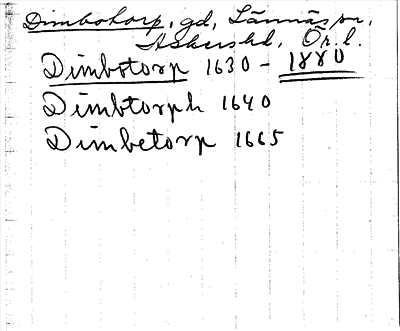 Dimbotorp, gd, Lännäs sn,
Askers hd, Ör. l.
Dimbotorp 1630 - 1880
Dimbtorph 1640
Dimbetorp 1665